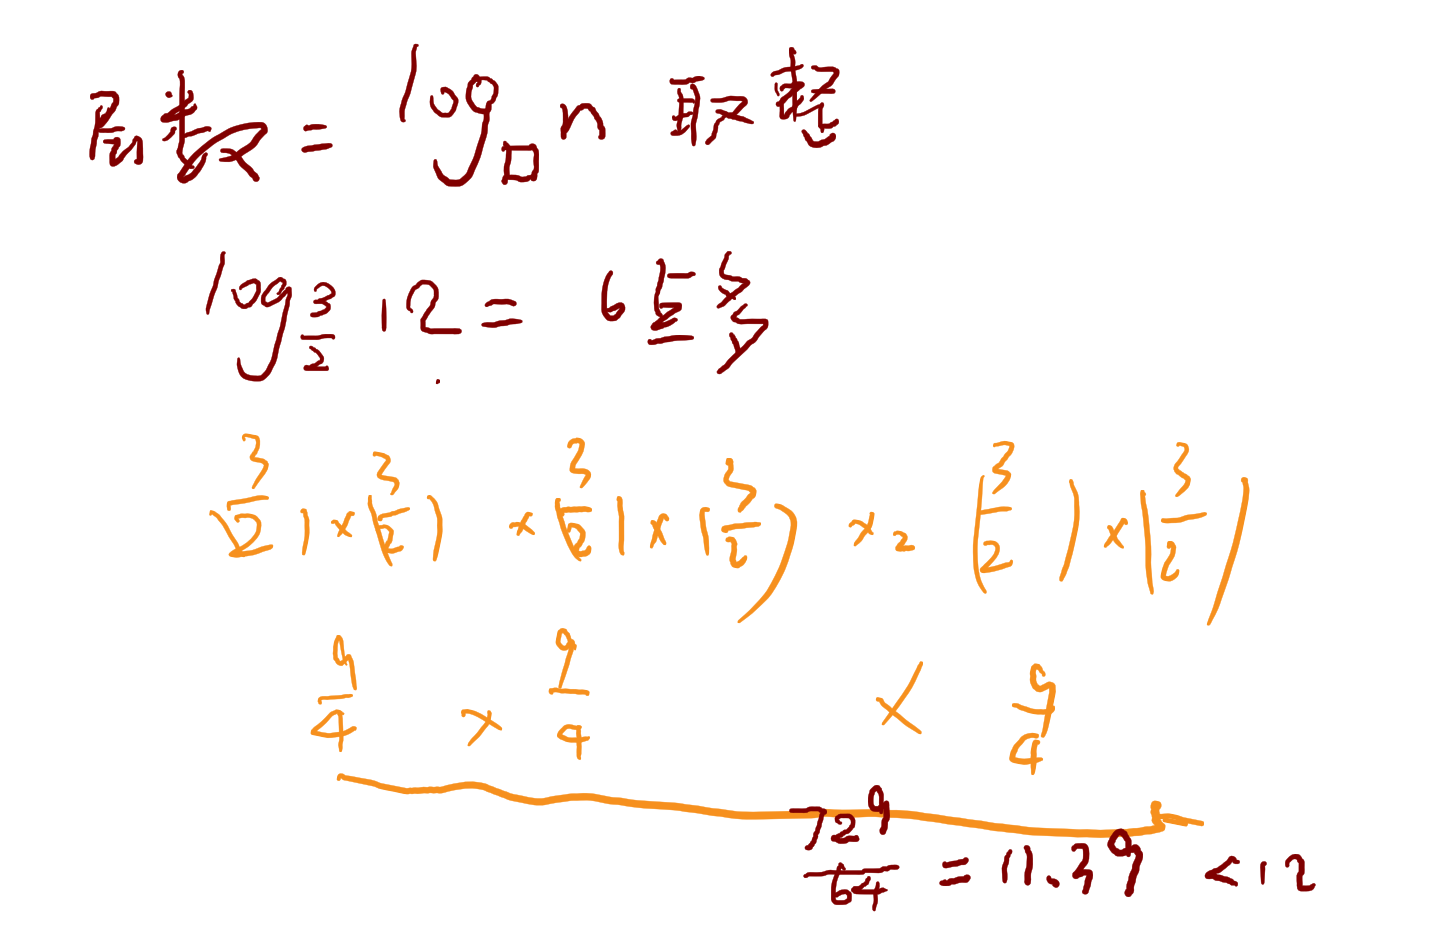 层数 = log□ n 取整
log 3/2 12 = 6点多
(3/2) × (3/2) × (3/2) × (3/2) ×2 (3/2) × (3/2)
9/4 × 9/4 × 9/4
729/64 = 11.39 < 12